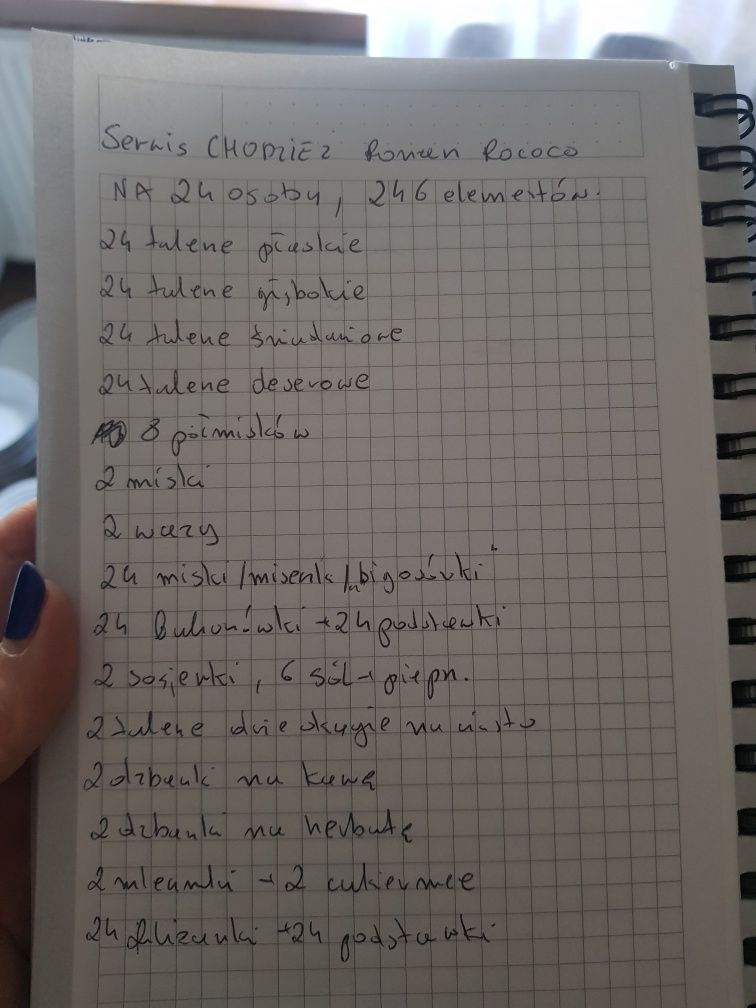 Serwis CHODZIEŻ Roman Rococo
NA 24 osoby, 246 elementów.
24 talerze płaskie
24 talerze głębokie
24 talerze śniadaniowe
24 talerze deserowe
8 półmisków
2 miski
2 wazy
24 miski/misenk/"bigosówki"
24 Bulionówki + 24 podstawki
2 sosjerki, 6 sól + piepn.
2 talerze duże okrągłe na ciasto
2 dzbanki na kawę
2 dzbanki na herbatę
2 mleczniki + 2 cukiernice
24 filiżanki + 24 podstawki